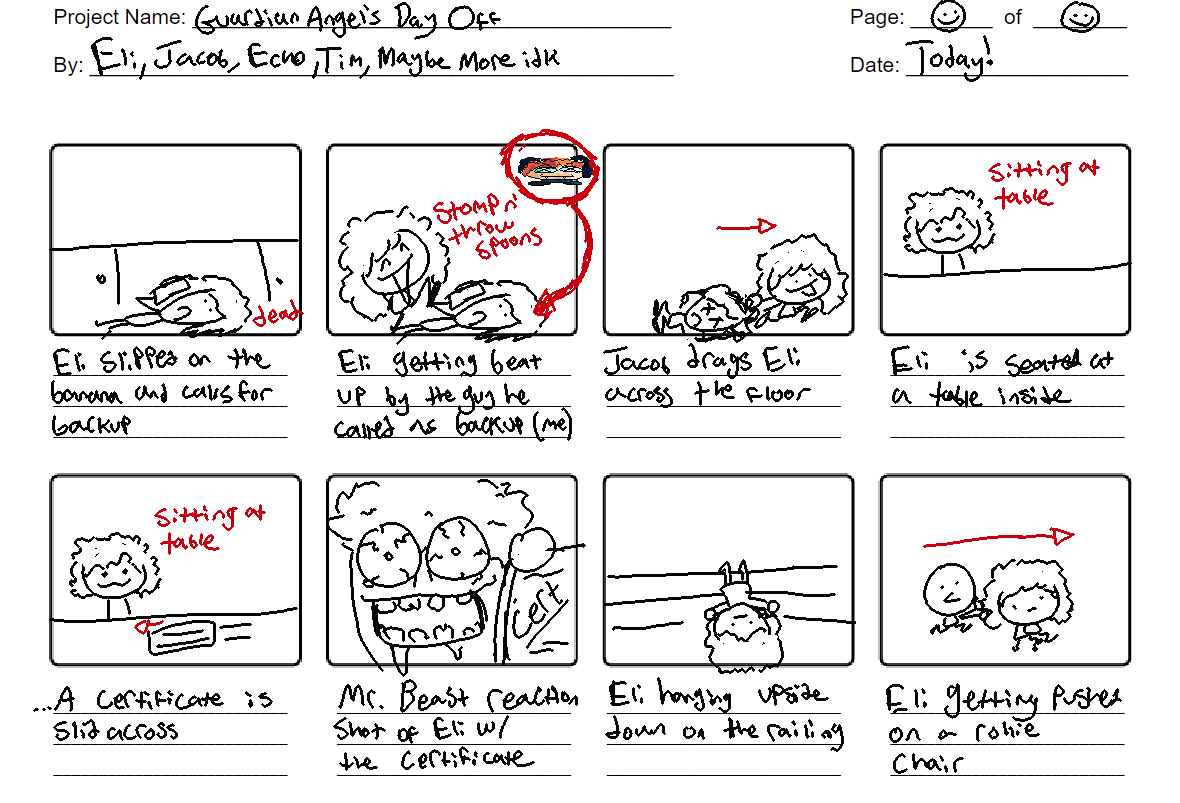 Project Name: Guardian Angel's Day Off
Page: of
By: Eli, Jacob, Echo, Tim, Maybe More idk
Date: Today!
dead
Stomp n'
throw
spoons
Sitting at
table
Eli slipped on the
banana and calls for
backup
Eli getting beat
up by the guy he
called as backup (me)
Jacob drags Eli
across the floor
Eli is seated at
a table inside
Sitting at
table
Cert
...A certificate is
slid across
Mr. Beast reaction
shot of Eli w/
the certificate
Eli hanging upside
down on the railing
Eli getting pushed
on a rollie
chair